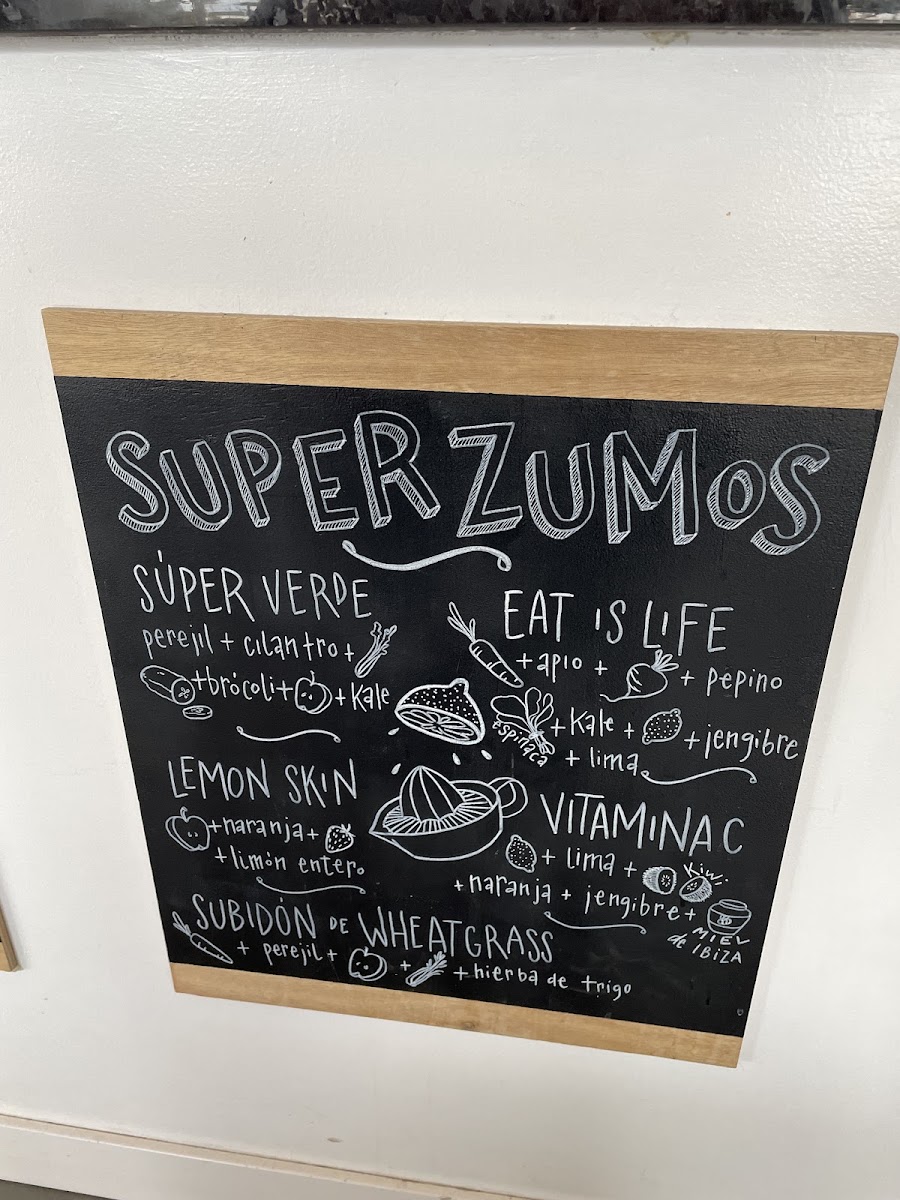 SUPER ZUMOS
SÚPER VERDE
perejil + cilantro +
+ brócoli + + Kale
EAT IS LIFE
+ apio + + pepino
espinaca + Kale + + jengibre
+ lima
LEMON SKIN
+ naranja +
+ limón entero
VITAMINA C
+ lima + Kiwi
+ naranja + jengibre +
MIEL
de IBIZA
SUBIDÓN DE WHEATGRASS
+ perejil + + + hierba de trigo